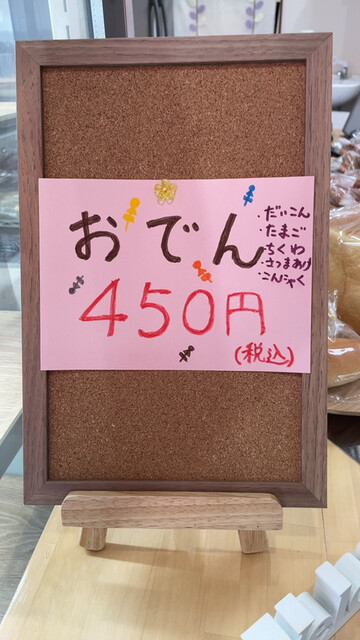 おでん
・だいこん
・たまご
・ちくわ
・さつまあげ
・こんにゃく
450円
(税込)